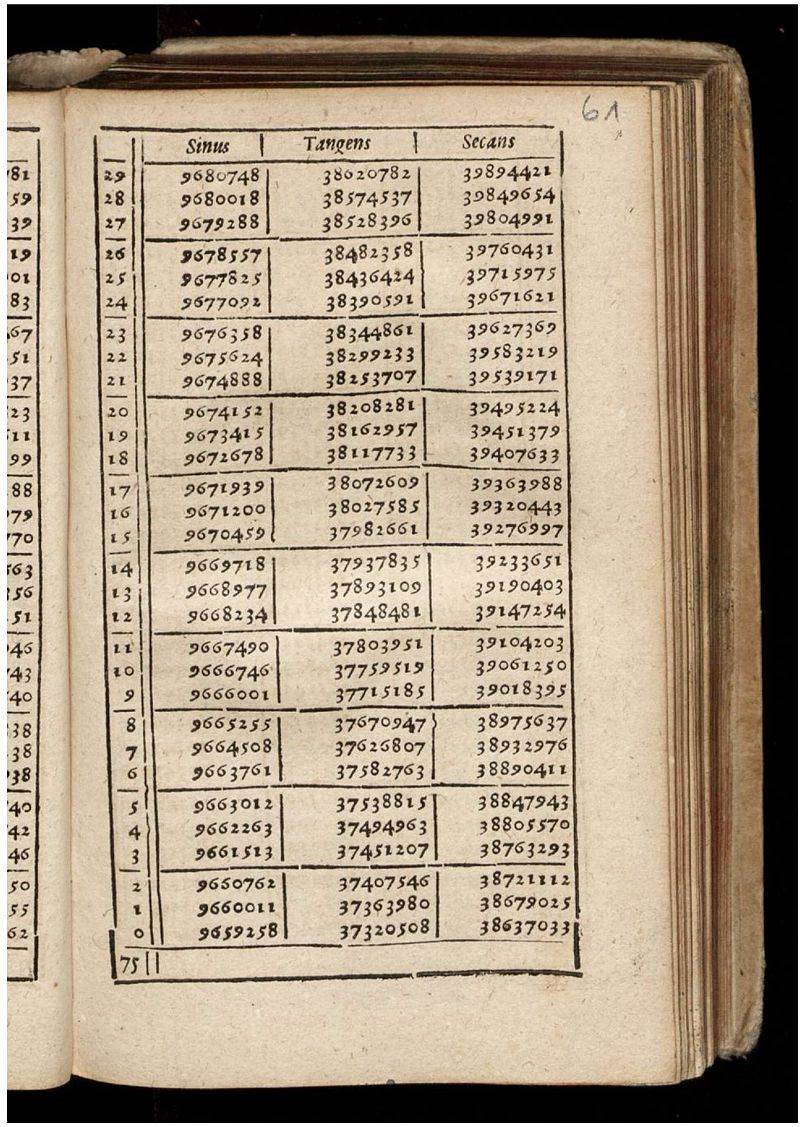 61
Sinus Tangens Secans
81 29 9680748 38620782 39894421
59 28 9680018 38574537 39849654
39 27 9679288 38528396 39804991
19 26 9678557 38482358 39760431
01 25 9677825 38436424 39715975
83 24 9677092 38390591 39671621
67 23 9676358 38344861 39627369
51 22 9675624 38299233 39583219
37 21 9674888 38253707 39539171
23 20 9674152 38208281 39495224
11 19 9673415 38162957 39451379
99 18 9672678 38117733 39407633
88 17 9671939 38072609 39363988
79 16 9671200 38027585 39320443
70 15 9670459 37982661 39276997
63 14 9669718 37937835 39233651
56 13 9668977 37893109 39190403
51 12 9668234 37848481 39147254
46 11 9667490 37803951 39104203
43 10 9666746 37759519 39061250
40 9 9666001 37715185 39018395
38 8 9665255 37670947 38975637
38 7 9664508 37626807 38932976
38 6 9663761 37582763 38890411
40 5 9663012 37538815 38847943
42 4 9662263 37494963 38805570
46 3 9661513 37451207 38763293
50 2 9660762 37407546 38721112
55 1 9660011 37363980 38679025
62 0 9659258 37320508 38637033
75